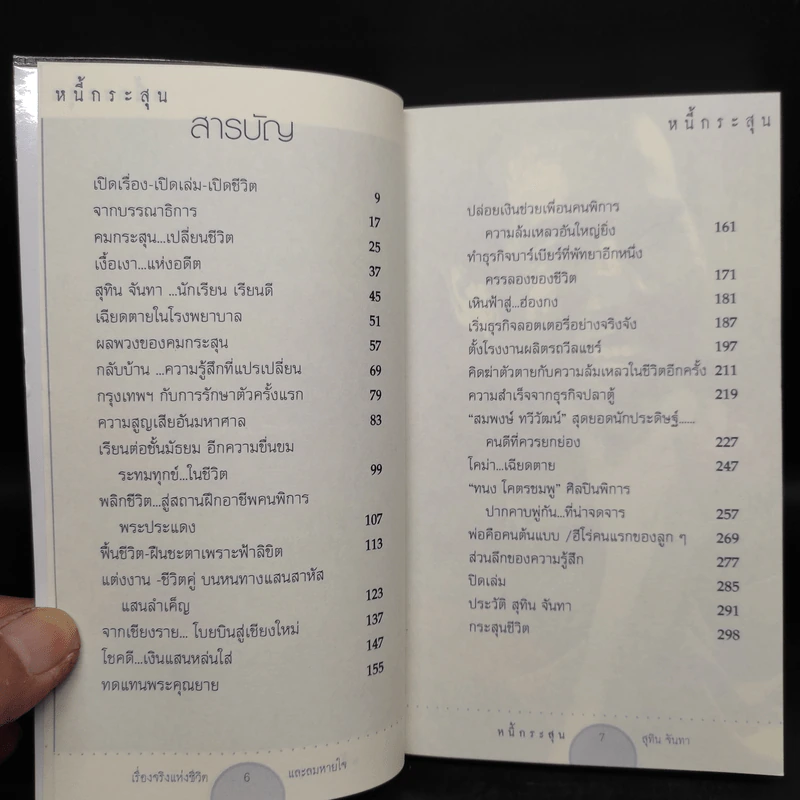 หนี้กระสุน
สารบัญ
เปิดเรื่อง-เปิดเล่ม-เปิดชีวิต 9
จากบรรณาธิการ 17
คมกระสุน...เปลี่ยนชีวิต 25
เงื้อเงา...แห่งอดีต 37
สุทิน จันทา ...นักเรียน เรียนดี 45
เฉียดตายในโรงพยาบาล 51
ผลพวงของคมกระสุน 57
กลับบ้าน ...ความรู้สึกที่แปรเปลี่ยน 69
กรุงเทพฯ กับการรักษาตัวครั้งแรก 79
ความสูญเสียอันมหาศาล 83
เรียนต่อชั้นมัธยม อีกความขื่นขม
ระทมทุกข์...ในชีวิต 99
พลิกชีวิต...สู่สถานฝึกอาชีพคนพิการ
พระประแดง 107
ฟื้นชีวิต-ฝืนชะตาเพราะฟ้าลิขิต 113
แต่งงาน -ชีวิตคู่ บนหนทางแสนสาหัส
แสนลำเค็ญ 123
จากเชียงราย... โบยบินสู่เชียงใหม่ 137
โชคดี...เงินแสนหล่นใส่ 147
ทดแทนพระคุณยาย 155
เรื่องจริงแห่งชีวิต 6 และลมหายใจ
หนี้กระสุน
ปล่อยเงินช่วยเพื่อนคนพิการ
ความล้มเหลวอันใหญ่ยิ่ง 161
ทำธุรกิจบาร์เบียร์ที่พัทยาอีกหนึ่ง
ครรลองของชีวิต 171
เหินฟ้าสู่...ฮ่องกง 181
เริ่มธุรกิจลอตเตอรี่อย่างจริงจัง 187
ตั้งโรงงานผลิตรถวีลแชร์ 197
คิดฆ่าตัวตายกับความล้มเหลวในชีวิตอีกครั้ง 211
ความสำเร็จจากธุรกิจปลาตู้ 219
“สมพงษ์ ทวีวัฒน์” สุดยอดนักประดิษฐ์......
คนดีที่ควรยกย่อง 227
โคม่า...เฉียดตาย 247
“ทนง โคตรชมพู” ศิลปินพิการ
ปากคาบพู่กัน...ที่น่าจดจาร 257
พ่อคือคนต้นแบบ /ฮีโร่คนแรกของลูก ๆ 269
ส่วนลึกของความรู้สึก 277
ปิดเล่ม 285
ประวัติ สุทิน จันทา 291
กระสุนชีวิต 298
หนี้กระสุน 7 สุทิน จันทา